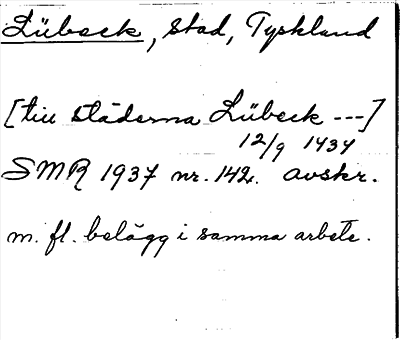 Lübeck, stad, Tyskland
[till städerna Lübeck ---]
12/9 1434
SMR 1937 nr. 142. avskr.
m. fl. belägg i samma arbete.